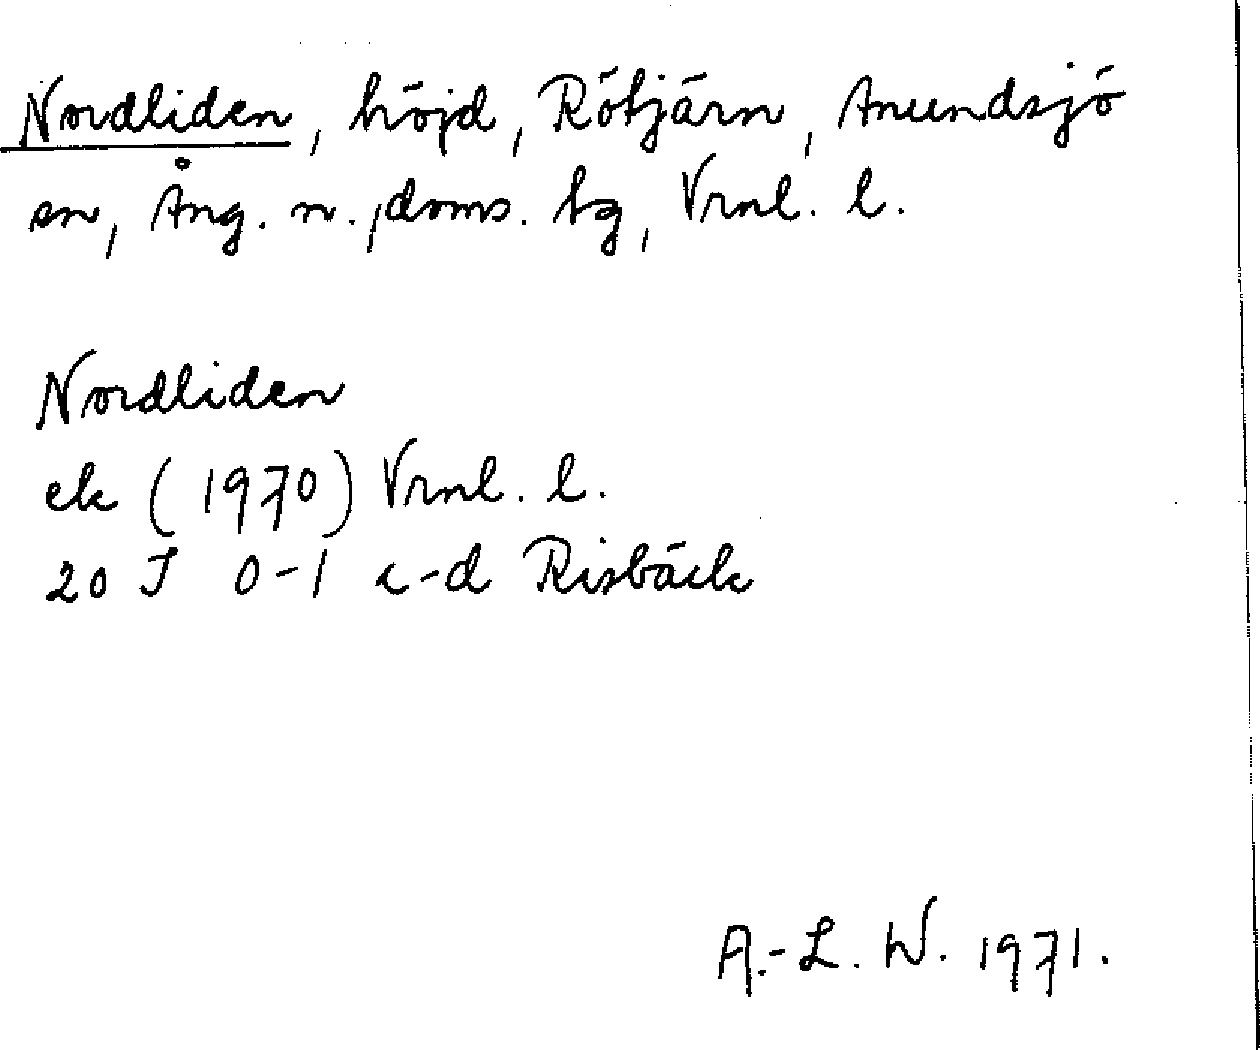 Nordliden, höjd, Rötjärn, Anundsjö
sn, Ång. n., doms. tg, Vrnl. l.
Nordliden
ek (1970) Vrnl. l.
20 J 0-1 c-d Risbäck
A.-L. W. 1971.